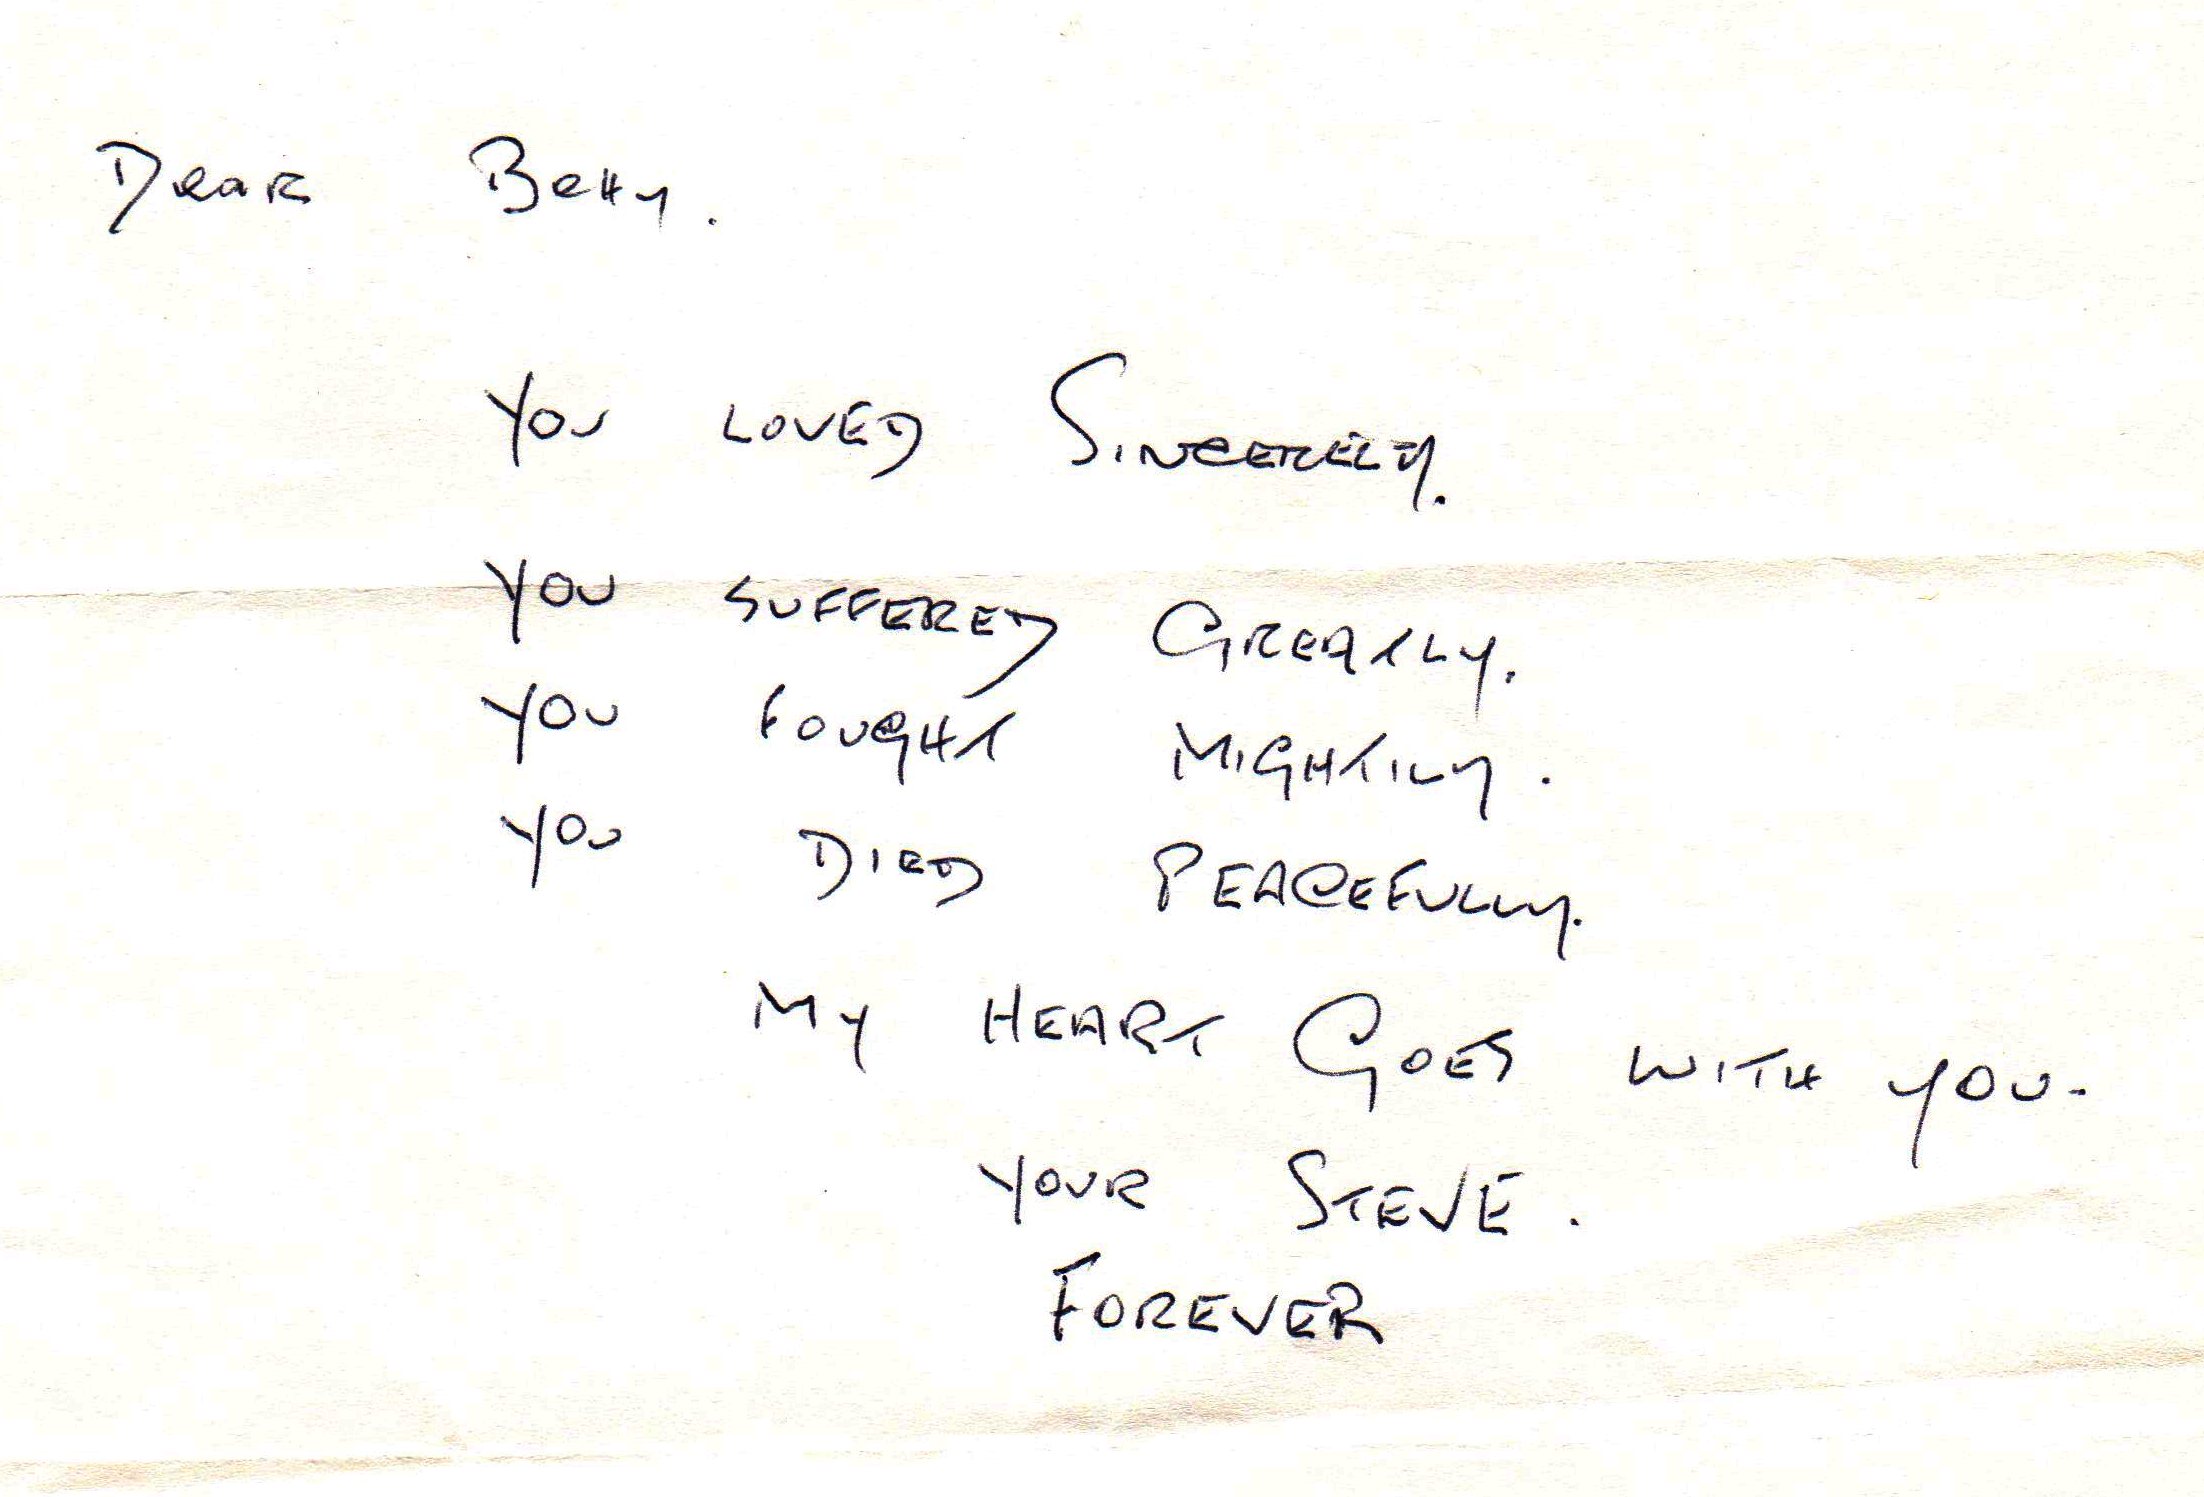 Dear Betty.
You LOVED SINCERELY.
YOU SUFFERED GREATLY.
YOU FOUGHT MIGHTILY.
YOU DIED PEACEFULLY.
MY HEART GOES WITH YOU.
YOUR STEVE.
FOREVER